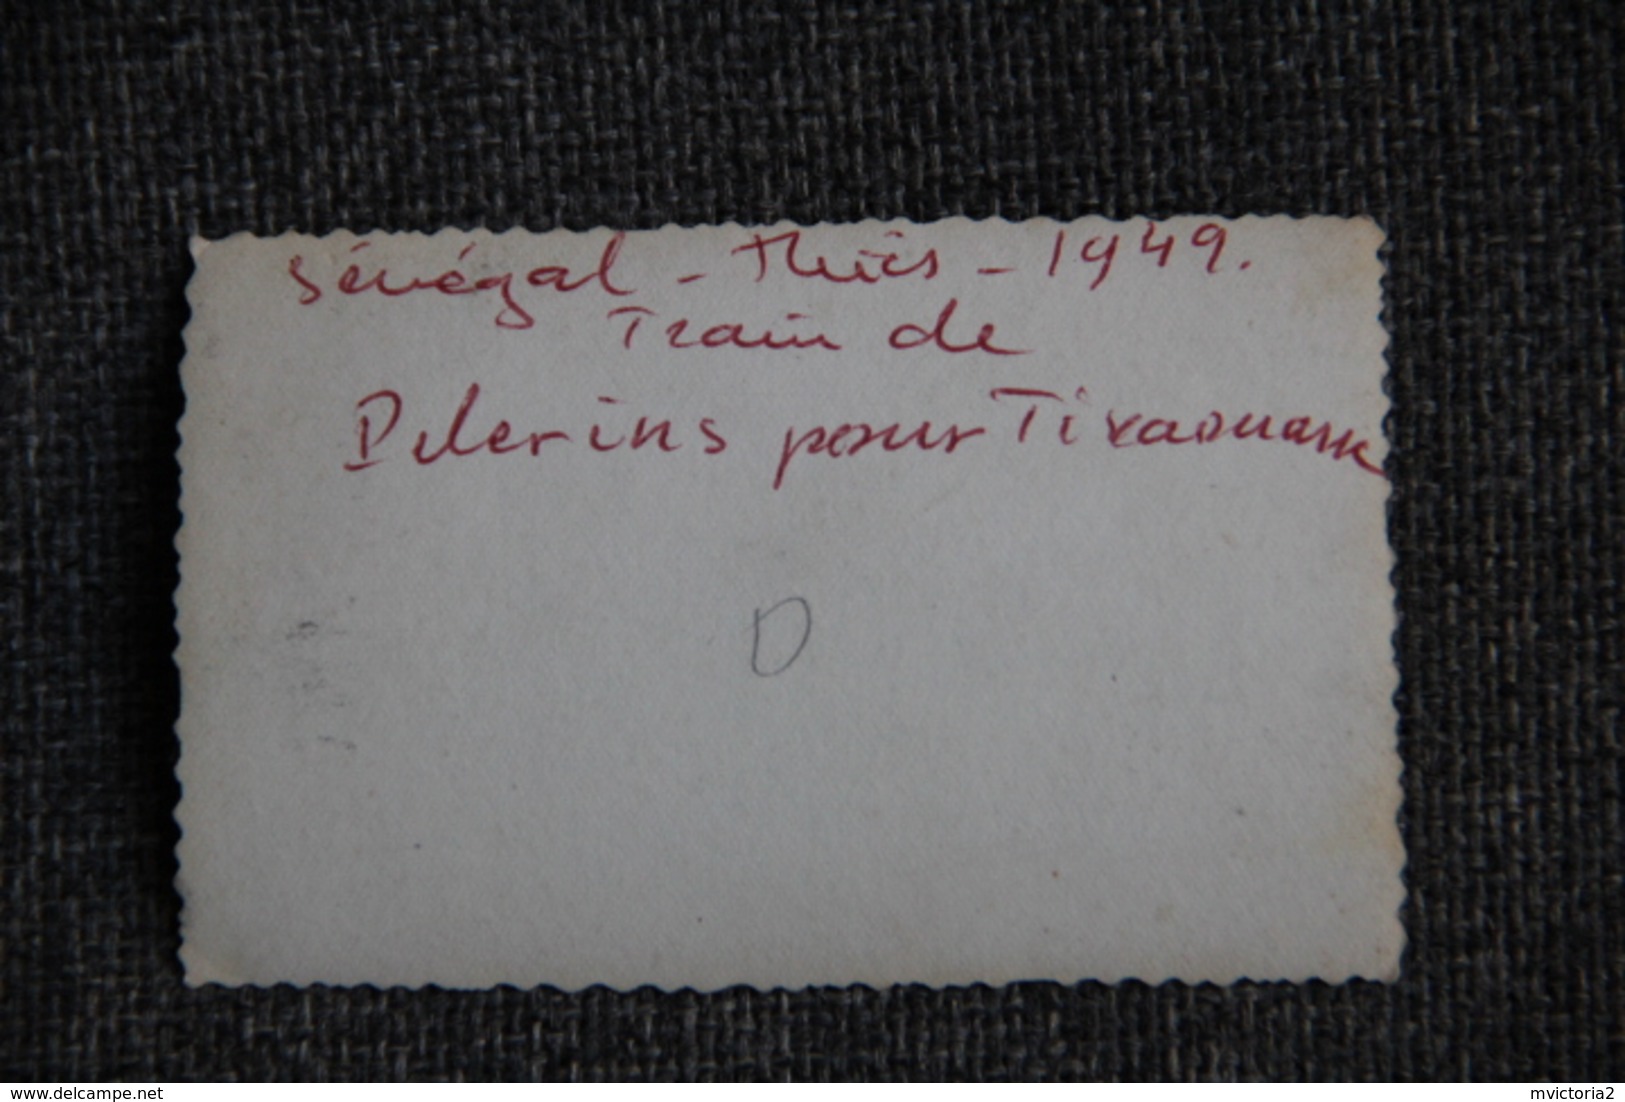 Sénégal - Thiès - 1949.
Train de
Pelerins pour Tivaouane
D
delcampe.net
mvictoria2